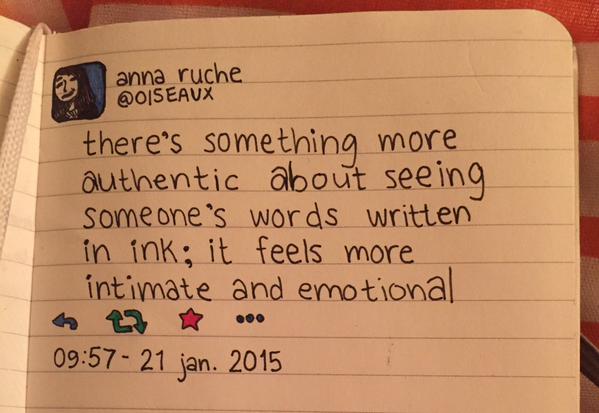 anna ruche
@OISEAUX
there's something more
authentic about seeing
someone's words written
in ink; it feels more
intimate and emotional
09:57 - 21 jan. 2015